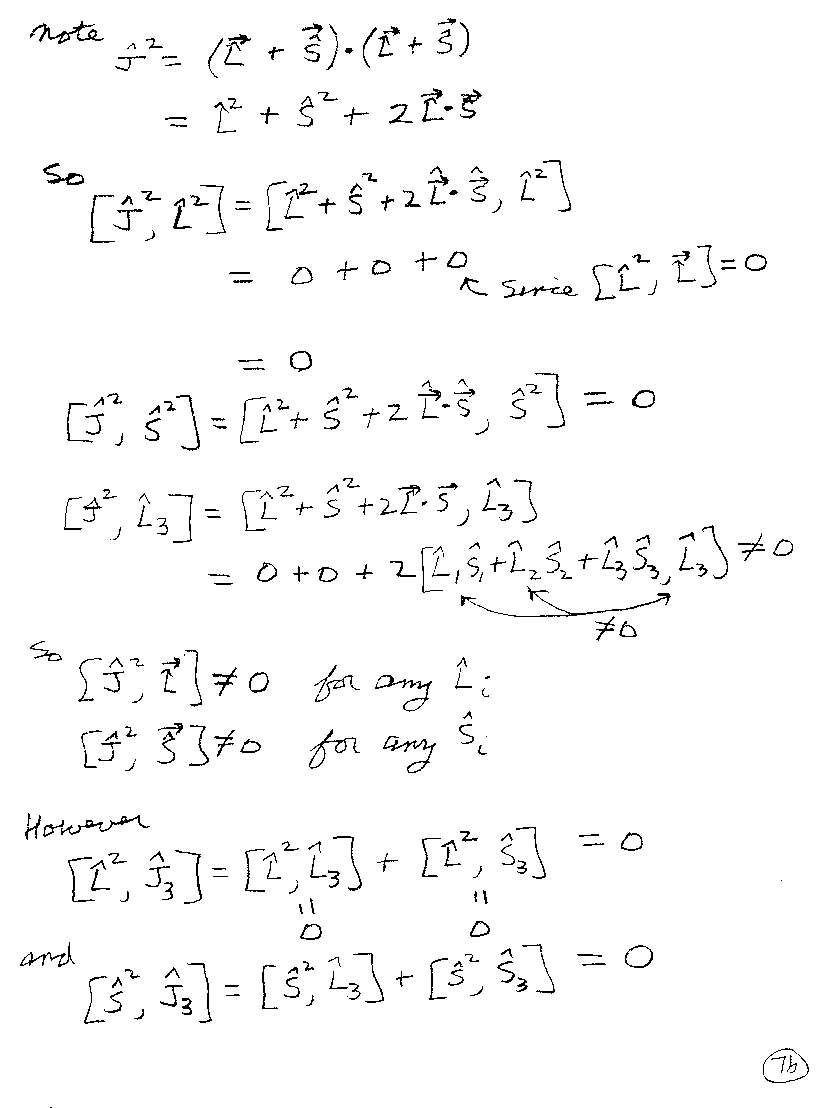 note Ĵ² = (L⃗ + S⃗)·(L⃗ + S⃗)
= L̂² + Ŝ² + 2 L⃗·S⃗
So
[Ĵ², L̂²] = [L̂² + Ŝ² + 2 L⃗·S⃗, L̂²]
= 0 + 0 + 0 ↖ since [L̂², L⃗] = 0
= 0
[Ĵ², Ŝ²] = [L̂² + Ŝ² + 2 L⃗·S⃗, Ŝ²] = 0
[Ĵ², L̂₃] = [L̂² + Ŝ² + 2 L⃗·S⃗, L̂₃]
= 0 + 0 + 2[L̂₁Ŝ₁ + L̂₂Ŝ₂ + L̂₃Ŝ₃, L̂₃] ≠ 0
≠0
So [Ĵ², L⃗] ≠ 0 for any L̂ᵢ
[Ĵ², S⃗] ≠ 0 for any Ŝᵢ
However
[L̂², Ĵ₃] = [L̂², L̂₃] + [L̂², Ŝ₃] = 0
= =
0 0
and
[Ŝ², Ĵ₃] = [Ŝ², L̂₃] + [Ŝ², Ŝ₃] = 0
76